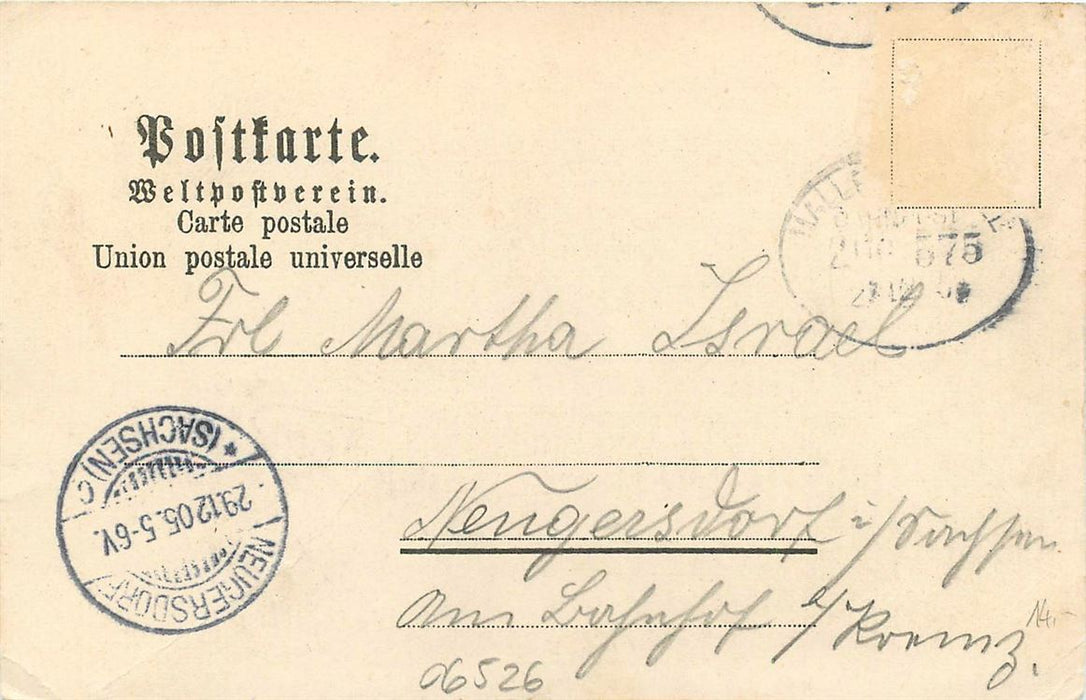 Postkarte.
Weltpostverein.
Carte postale
Union postale universelle
HALLE
575
Frl Martha Israel
NEUGERSDORF
* (SACHSEN) C
29.12.05. 5-6V.
Neugersdorf i/Sachsen
am Bahnhof
14.-
06526